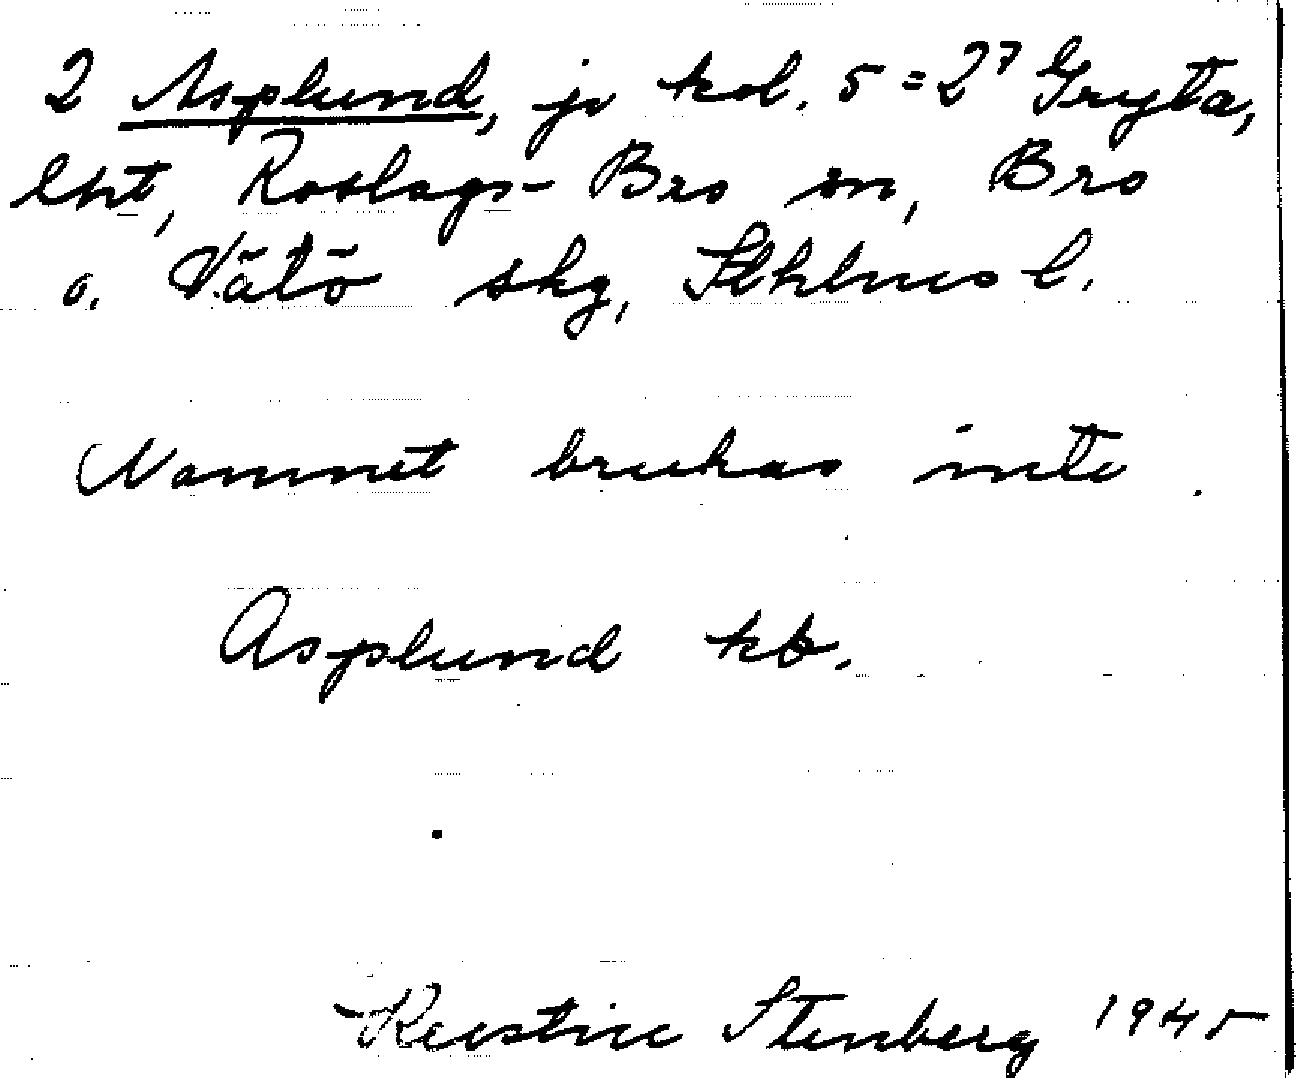 2 Asplund, jv kol. 5 = 2⁷ Gryta,
lht, Roslags-Bro sn, Bro
o. Vätö skg, Sthlms l.
Namnet brukas inte.
Asplund kb.
Kerstin Stenberg 1945